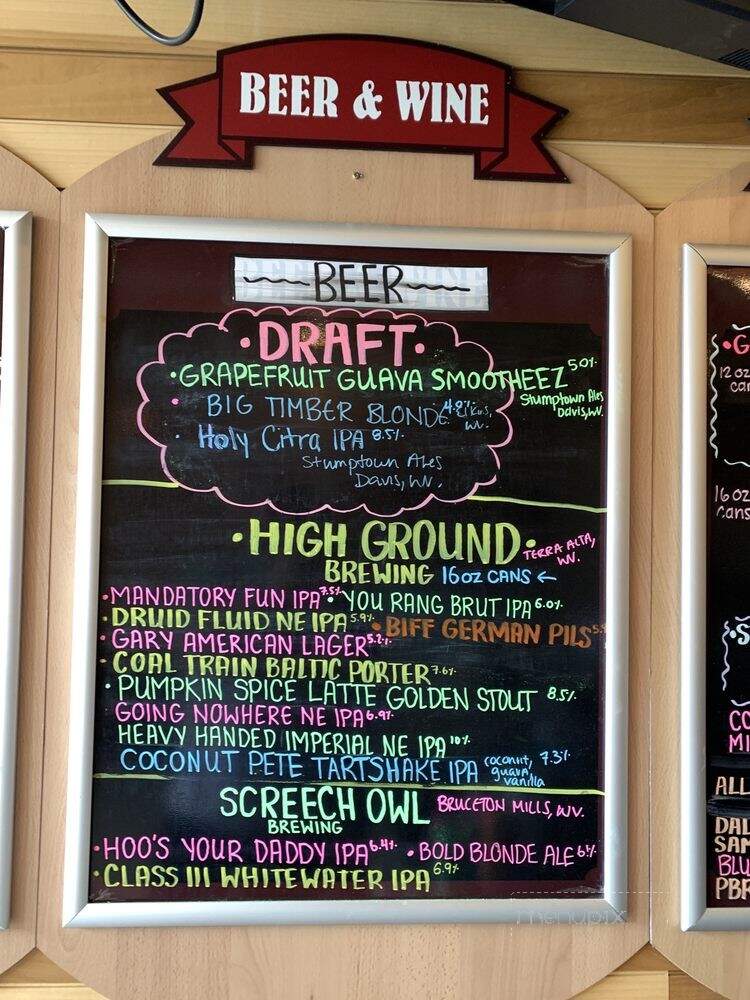 BEER & WINE
BEER
• DRAFT •
• GRAPEFRUIT GUAVA SMOOTHEEZ 5.0%
Stumptown Ales
Davis, WV.
• BIG TIMBER BLONDE 4.8% Elkins,
WV.
• Holy Citra IPA 8.5%
Stumptown Ales
Davis, WV.
• HIGH GROUND •
TERRA ALTA,
WV.
BREWING 16oz CANS ←
• MANDATORY FUN IPA 7.5% • YOU RANG BRUT IPA 6.0%
• DRUID FLUID NE IPA 5.9% • BIFF GERMAN PILS
• GARY AMERICAN LAGER 5.2%
• COAL TRAIN BALTIC PORTER 7.6%
• PUMPKIN SPICE LATTE GOLDEN STOUT 8.5%
GOING NOWHERE NE IPA 6.9%
HEAVY HANDED IMPERIAL NE IPA 10%
COCONUT PETE TARTSHAKE IPA coconut, guava, vanilla 7.3%
SCREECH OWL BRUCETON MILLS, WV.
BREWING
• HOO'S YOUR DADDY IPA 6.4% • BOLD BLONDE ALE 6%
• CLASS III WHITEWATER IPA 6.9%
• G
12 oz
can
16 oz
cans
• S
CO
MI
ALL
DAL
SAM
BLU
PBR
menupix